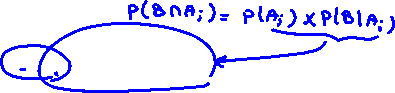 P(B∩Aᵢ) = P(Aᵢ) x P(B|Aᵢ)